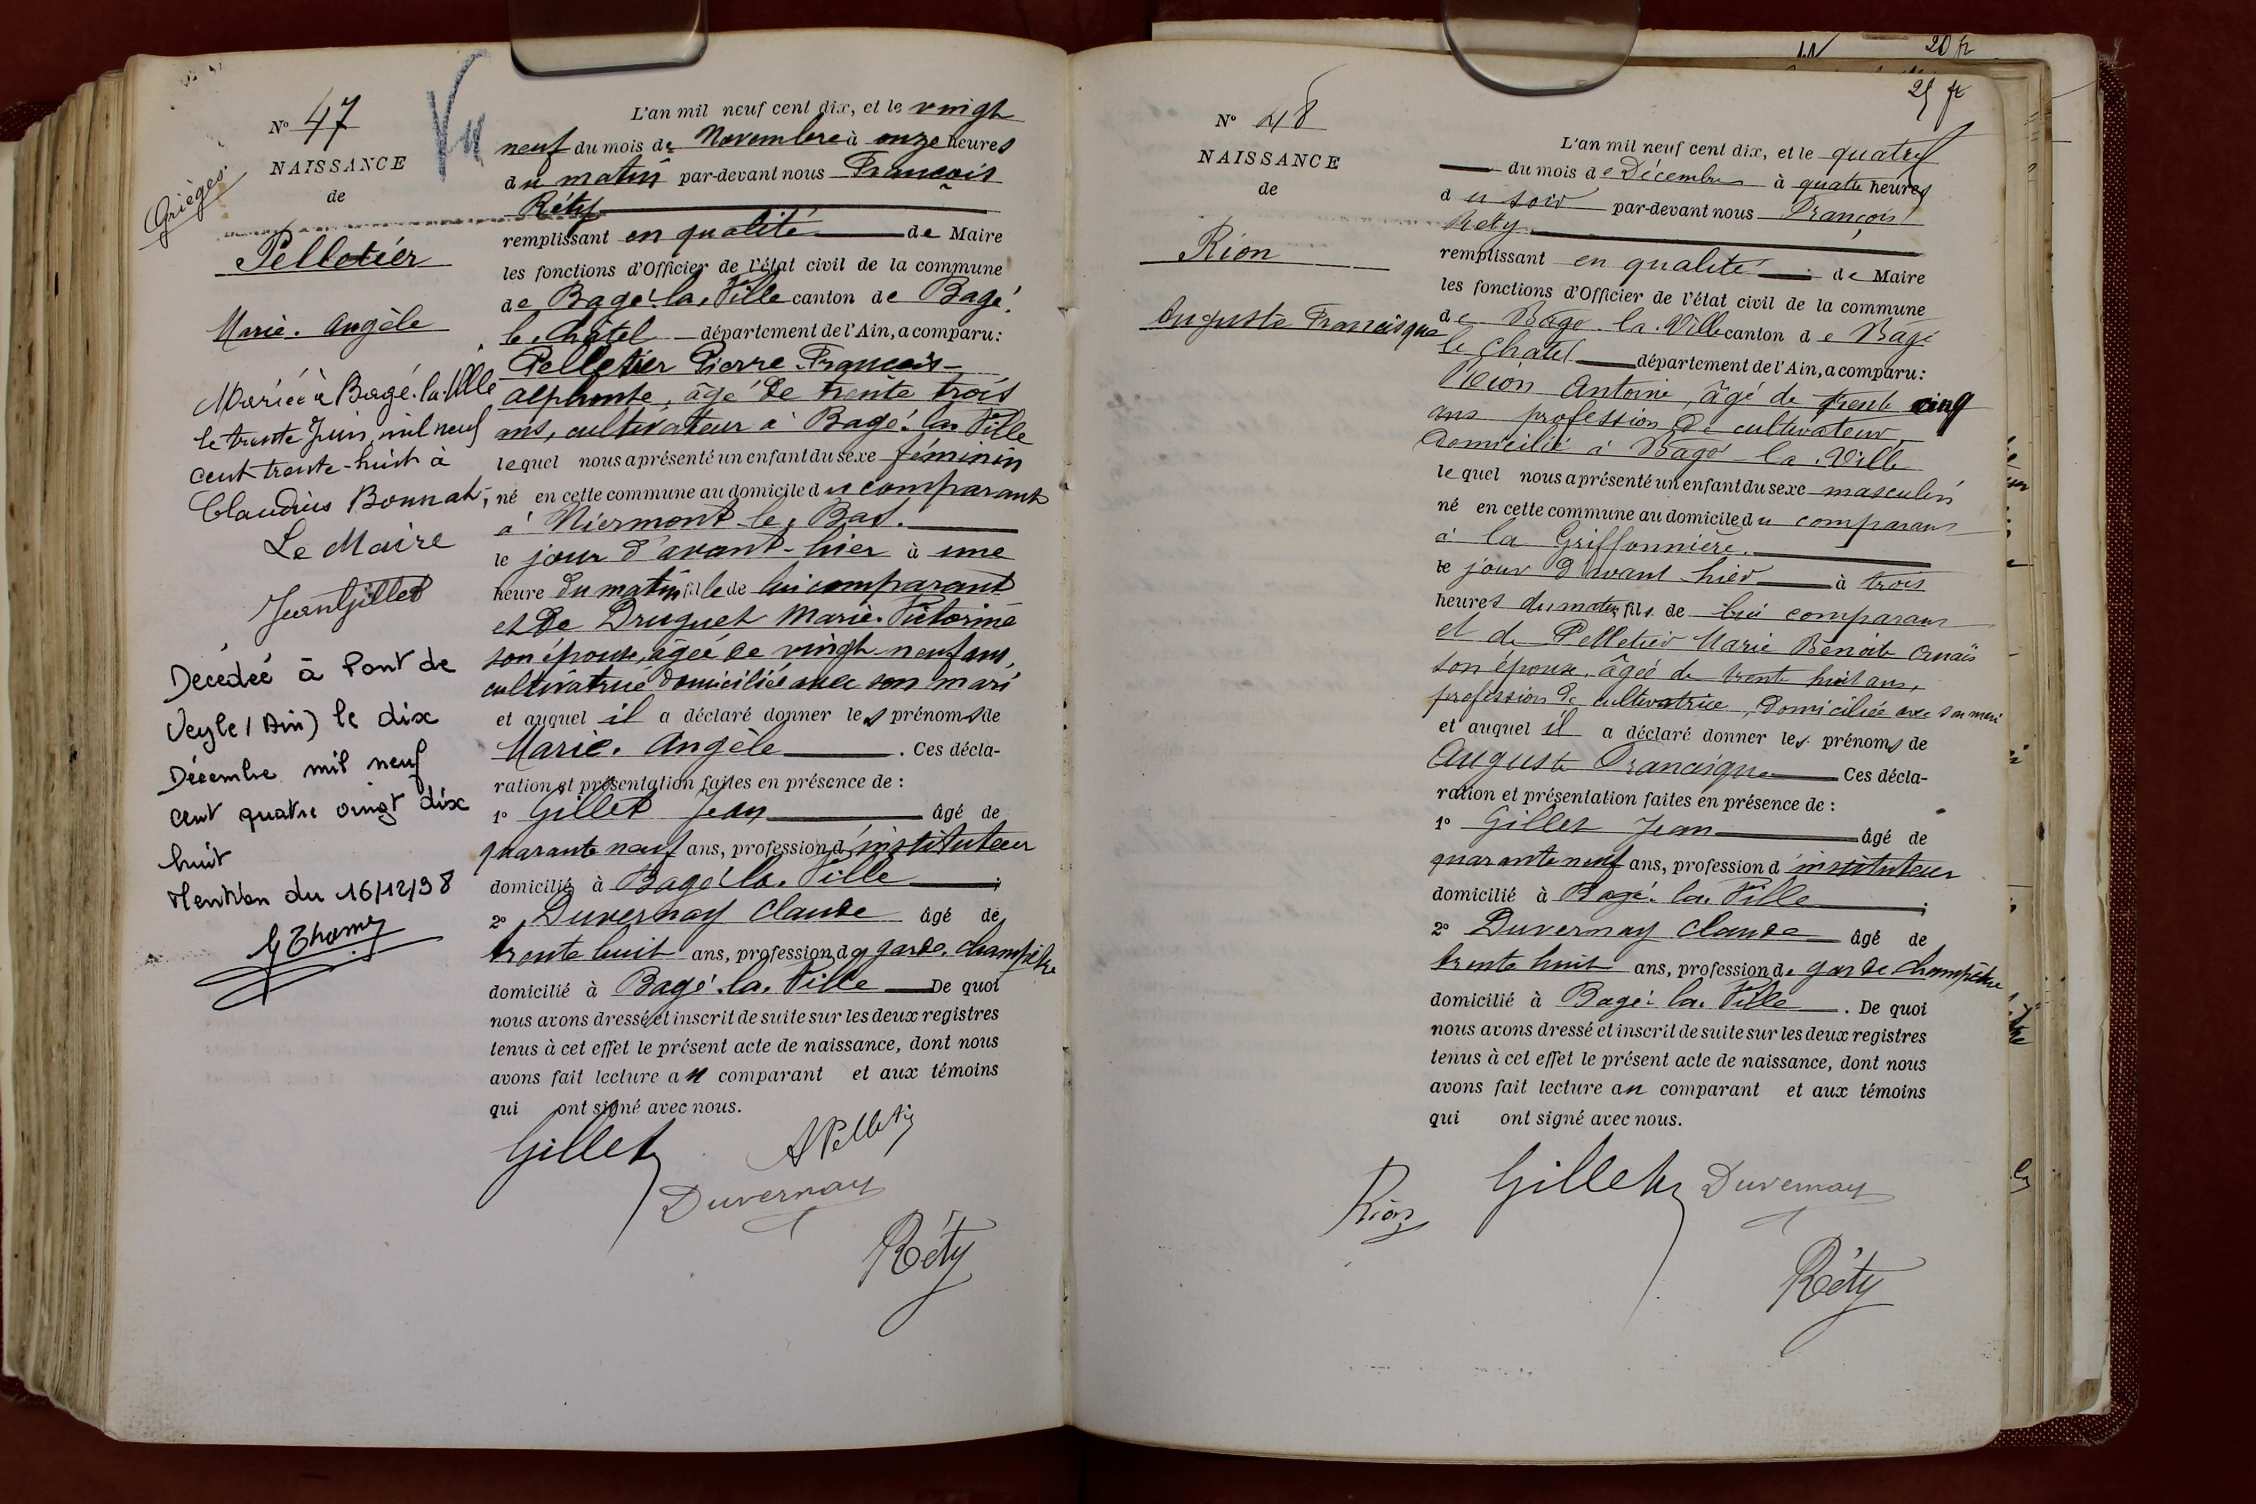 N° 47
NAISSANCE
de
Grièges
Pelletier
Marie. Angèle
Mariée à Bagé-la-Ville
le trente Juin mil neuf
cent trente-huit à
Claudius Bonnat,
Le Maire
Jean Gillet
Décédée à Pont de
Veyle (Ain) le dix
Décembre mil neuf
cent quatre vingt dix
huit
Mention du 16/12/98
Vu
L'an mil neuf cent dix, et le vingt
neuf du mois de Novembre à onze heures
du matin par-devant nous François
Réty
remplissant en qualité de Maire
les fonctions d'Officier de l'état civil de la commune
de Bagé-la-Ville canton de Bagé-
le-Châtel département de l'Ain, a comparu:
Pelletier Pierre-François-
Alphonse, âgé de trente trois
ans, cultivateur à Bagé-la-Ville
lequel nous a présenté un enfant du sexe féminin
né en cette commune au domicile du comparant
à Niermont-le-Bas.
le jour d'avant-hier à une
heure du matin fille de lui comparant
et de Druguet Marie-Victorine
son épouse, âgée de vingt-neuf ans,
cultivatrice domiciliée avec son mari
et auquel il a déclaré donner les prénoms de
Marie. Angèle. Ces décla-
ration et présentation faites en présence de :
1° Gillet Jean âgé de
quarante neuf ans, profession d'instituteur
domicilié à Bagé-la-Ville ;
2° Duvernay Claude âgé de
trente huit ans, profession de garde-champêtre
domicilié à Bagé-la-Ville De quoi
nous avons dressé et inscrit de suite sur les deux registres
tenus à cet effet le présent acte de naissance, dont nous
avons fait lecture au comparant et aux témoins
qui ont signé avec nous.
Gillet
A Pelletier
Duvernay
Réty
20 fr
25 fr
N° 48
NAISSANCE
de
Rion
Auguste Francisque
L'an mil neuf cent dix, et le quatre
du mois de Décembre à quatre heures
du soir par-devant nous François
Réty
remplissant en qualité de Maire
les fonctions d'Officier de l'état civil de la commune
de Bagé-la-Ville canton de Bagé
le Châtel département de l'Ain, a comparu:
Rion Antoine, âgé de trente cinq
ans profession de cultivateur,
domicilié à Bagé-la-Ville
lequel nous a présenté un enfant du sexe masculin
né en cette commune au domicile du comparant
à la Griffonnière.
le jour d'avant hier à trois
heures du matin, fils de lui comparant
et de Pelletier Marie Benoite
son épouse, âgée de trente huit ans,
profession de cultivatrice, domiciliée avec son mari
et auquel il a déclaré donner les prénoms de
Auguste Francisque Ces décla-
ration et présentation faites en présence de :
1° Gillet Jean âgé de
quarante neuf ans, profession d'instituteur
domicilié à Bagé-la-Ville ;
2° Duvernay Claude âgé de
trente huit ans, profession de garde champêtre
domicilié à Bagé-la-Ville. De quoi
nous avons dressé et inscrit de suite sur les deux registres
tenus à cet effet le présent acte de naissance, dont nous
avons fait lecture au comparant et aux témoins
qui ont signé avec nous.
Rion
Gillet
Duvernay
Réty